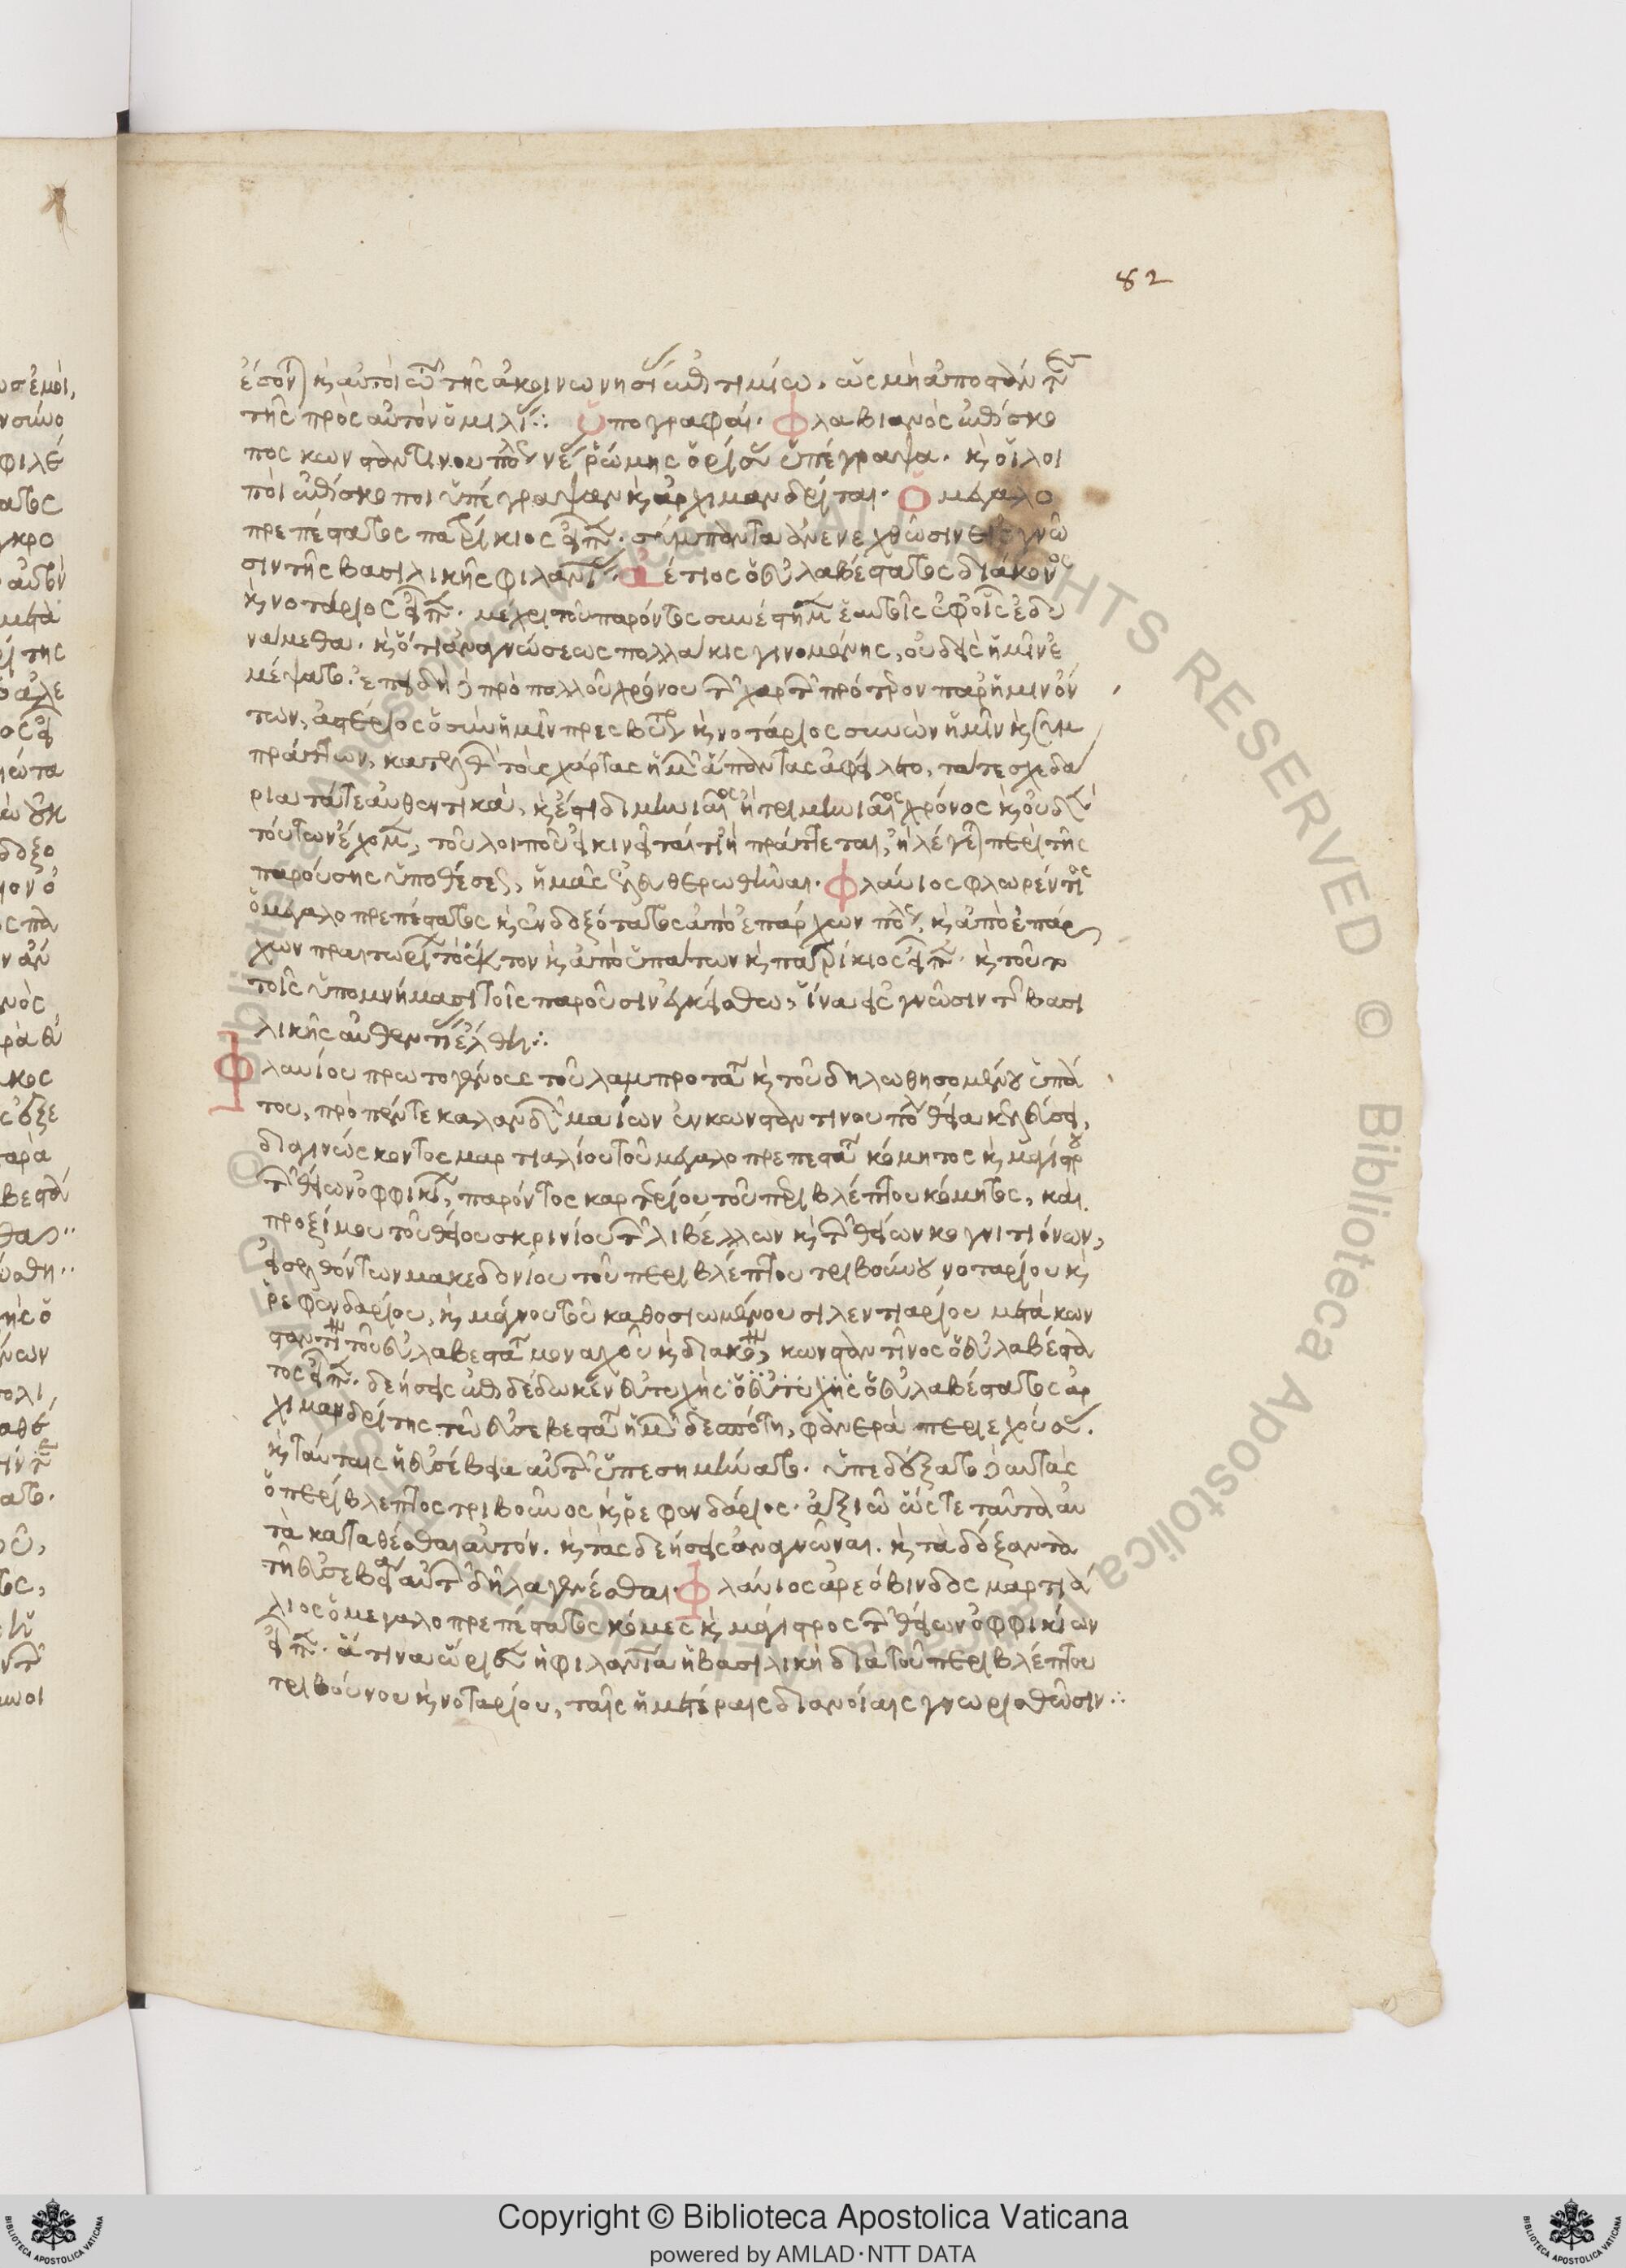 82
ἔσονται καὶ αὐτοὶ σὺν τῆς ἀκοινωνησίας ἐπιτιμίῳ, ὡς μὴ ἀποστάντες
τῆς πρὸς αὐτὸν ὁμιλίας ∴ Ὑπογραφαί. Φλαβιανὸς ἐπίσκο
πος κωνσταντινουπόλεως νέας ῥώμης ὁρίσας ὑπέγραψα. καὶ οἱ λοι
ποὶ ἐπίσκοποι ὑπέγραψαν καὶ ἀρχιμανδρίται. Ὁ μεγαλο
πρεπέστατος πατρίκιος εἶπεν. σύμπαντα ἀνενεχθῶσιν εἰς γνῶ
σιν τῆς βασιλικῆς φιλανθρωπίας. Ἀέτιος ὁ εὐλαβέστατος διάκονος
καὶ νοτάριος εἶπεν. μέχρι τοῦ παρόντος συνέστημεν ἑαυτοῖς ἐφ οἷς ἐδυ
νάμεθα. καὶ ὅτι ἀναγνώσεως πολλάκις γινομένης, οὐδεὶς ἡμῖν ἐ
μέμψατο. ἐπειδὴ δὲ πρὸ πολλοῦ χρόνου τῶν χαρτῶν πρότερον παρ ἡμῖν ὄν
των, ἀστέριος ὁ σὺν ἡμῖν πρεσβύτερος καὶ νοτάριος συνὼν ἡμῖν καὶ συμ
πράττων, κατελθὼν τοὺς χάρτας ἡμῶν ἅπαντας ἀφείλετο, τά τε σχεδά
ρια τά τε αὐθεντικά, καὶ ἔστι διμηνιαῖος ἢ τριμηνιαῖος χρόνος καὶ οὐδὲν
τούτων ἔχομεν, τοῦ λοιποῦ εἰ κινεῖταί τι ἢ πράττεται, ἢ λέγεται περὶ τῆς
παρούσης ὑποθέσεως, ἡμᾶς ἐλευθερωθῆναι. Φλάυιος φλωρέντιος
ὁ μεγαλοπρεπέστατος καὶ ἐνδοξότατος ἀπὸ ἐπάρχων πόλεως, καὶ ἀπὸ ἐπάρ
χων πραιτωρίων τὸ ἕκτον καὶ ἀπὸ ὑπάτων καὶ πατρίκιος εἶπεν. καὶ τοῦτο
τοῖς ὑπομνήμασι τοῖς παροῦσιν ἐγκείσθω, ἵνα εἰς γνῶσιν τῆς βασι
λικῆς αὐθεντίας ἔλθῃ ∴
Φλαυίου πρωτογένους τοῦ λαμπροτάτου καὶ τοῦ δηλωθησομένου ὑπά
του, πρὸ πέντε καλανδῶν μαίων ἐν κωνσταντινουπόλει θείᾳ κελεύσει,
διαγινώσκοντος μαρτιαλίου τοῦ μεγαλοπρεπεστάτου κόμητος καὶ μαγίστρου
τῶν θείων ὀφφικίων, παρόντος καρτερίου τοῦ περιβλέπτου κόμητος, καὶ
προξίμου τοῦ θείου σκρινίου τῶν λιβέλλων καὶ τῶν θείων κογνιτιόνων,
εἰσελθόντων μακεδονίου τοῦ περιβλέπτου τριβούνου νοταρίου καὶ
ῥεφενδαρίου, καὶ μάγνου τοῦ καθοσιωμένου σιλεντιαρίου μετὰ κων
σταντίνου τοῦ εὐλαβεστάτου μοναχοῦ καὶ διακόνου, κωνσταντῖνος ὁ εὐλαβέστα
τος εἶπεν. δεήσεις ἐπιδέδωκεν εὐτυχὴς ὁ εὐτυχὴς ὁ εὐλαβέστατος ἀρ
χιμανδρίτης τῷ εὐσεβεστάτῳ ἡμῶν δεσπότῃ, φανερὰ περιεχούσας.
καὶ ταύταις ἡ εὐσέβεια αὐτοῦ ὑπεσημήνατο. ὑπεδέξατο δὲ αὐτὰς
ὁ περίβλεπτος τριβοῦνος καὶ ῥεφενδάριος. ἀξιῶ ὥστε ταῦτα αὐ
τὰ καταθέσθαι αὐτόν. καὶ τὰς δεήσεις ἀναγνῶναι. καὶ τὰ δόξαντα
τῇ εὐσεβείᾳ αὐτοῦ δῆλα γενέσθαι. Φλάυιος ἀρεόβινδος μαρτιά
λιος ὁ μεγαλοπρεπέστατος κόμες καὶ μάγιστρος τῶν θείων ὀφφικίων
εἶπεν. ἅτινα ὥρισεν ἡ φιλανθρωπία ἡ βασιλικὴ διὰ τοῦ περιβλέπτου
τριβούνου καὶ νοταρίου, ταῖς ἡμετέραις διανοίαις γνωρισθῶσιν ∴
Copyright © Biblioteca Apostolica Vaticana
powered by AMLAD·NTT DATA